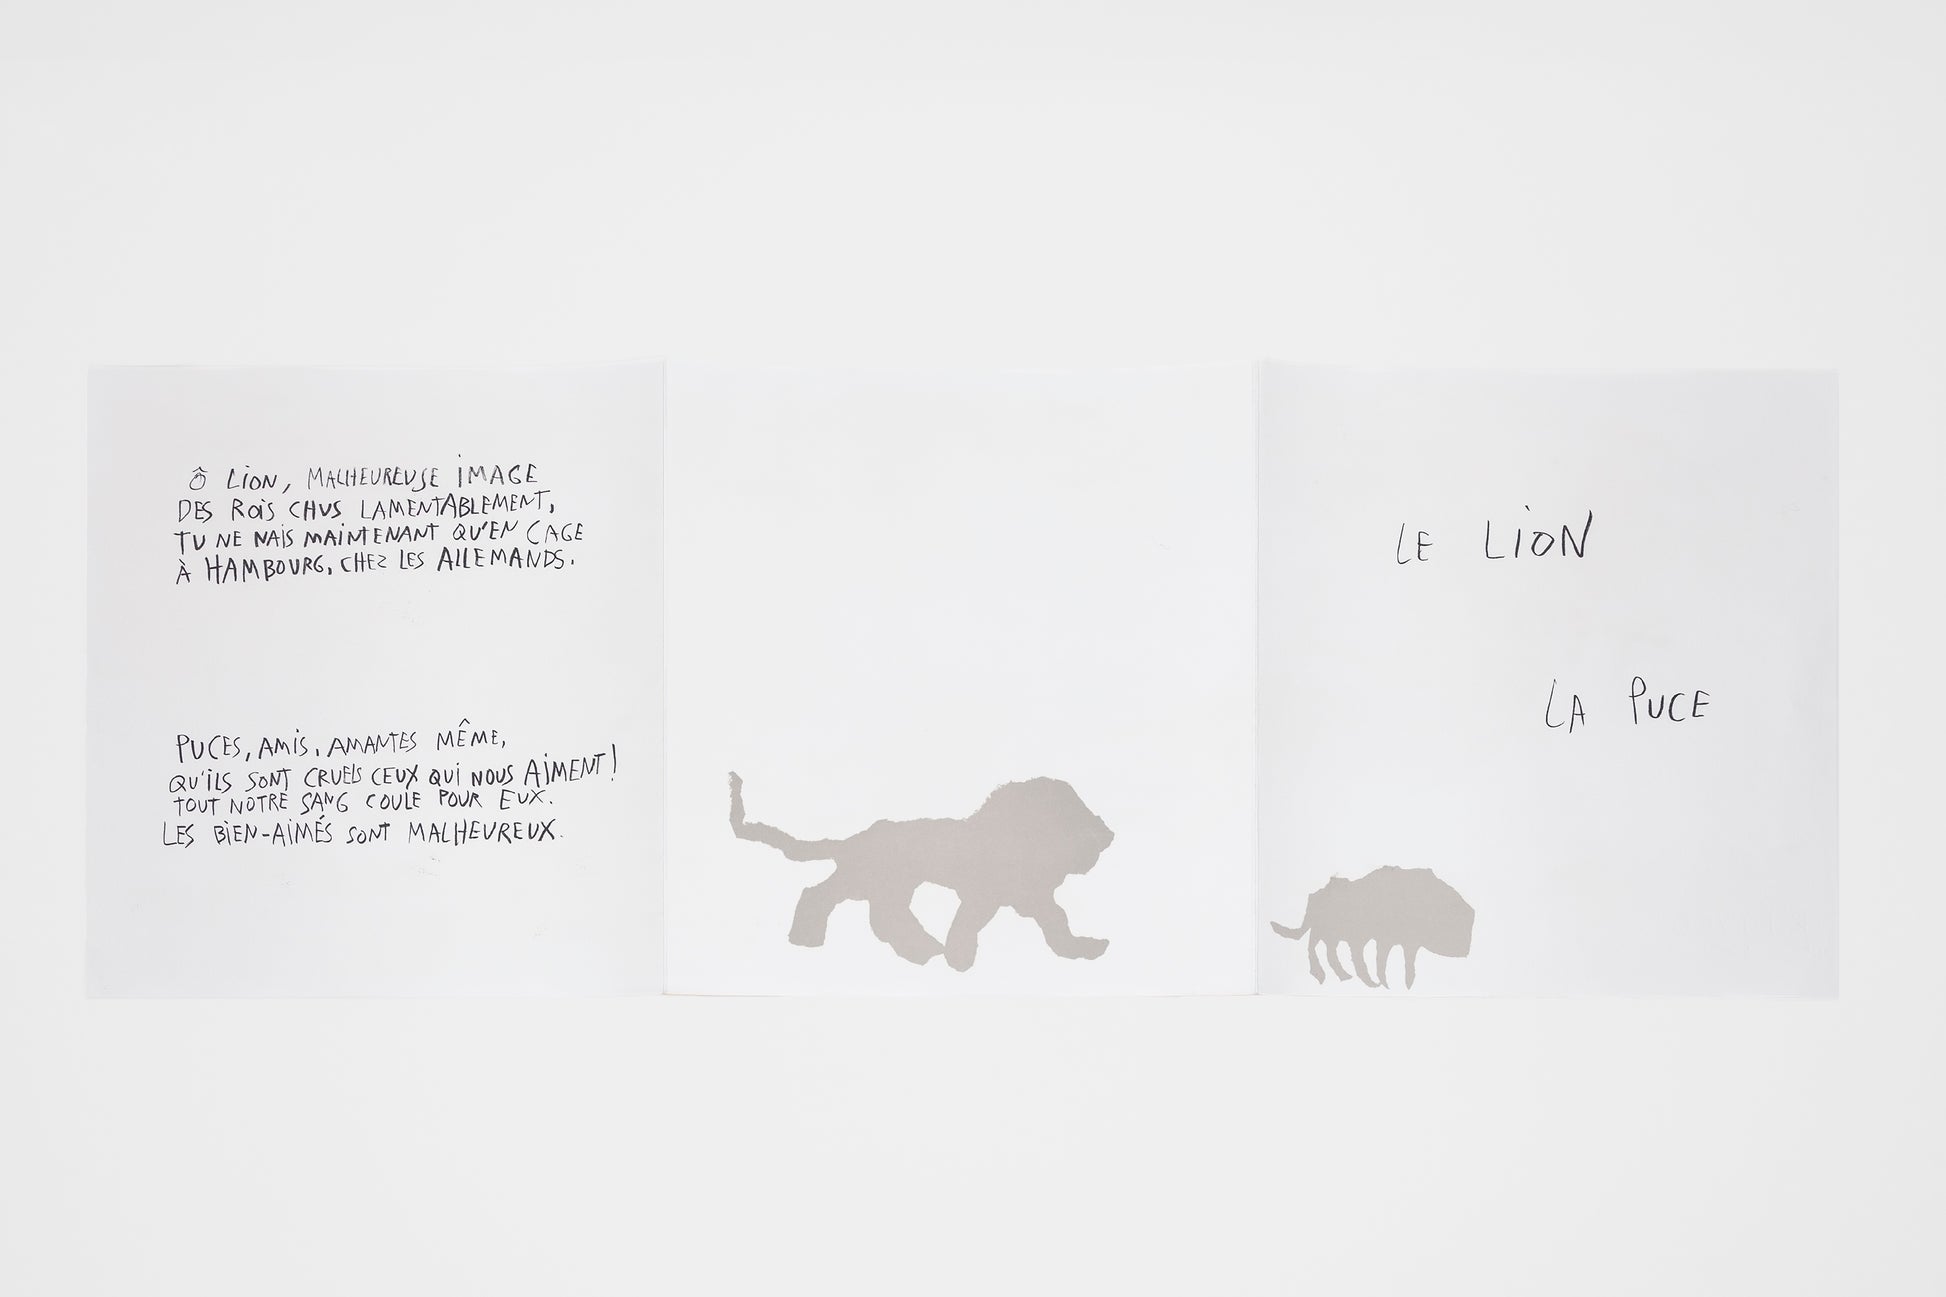 Ô LION, MALHEUREUSE IMAGE
DES ROIS CHUS LAMENTABLEMENT,
TU NE NAIS MAINTENANT QU'EN CAGE
À HAMBOURG, CHEZ LES ALLEMANDS.
PUCES, AMIS, AMANTES MÊME,
QU'ILS SONT CRUELS CEUX QUI NOUS AIMENT!
TOUT NOTRE SANG COULE POUR EUX.
LES BIEN-AIMÉS SONT MALHEUREUX.
LE LION
LA PUCE